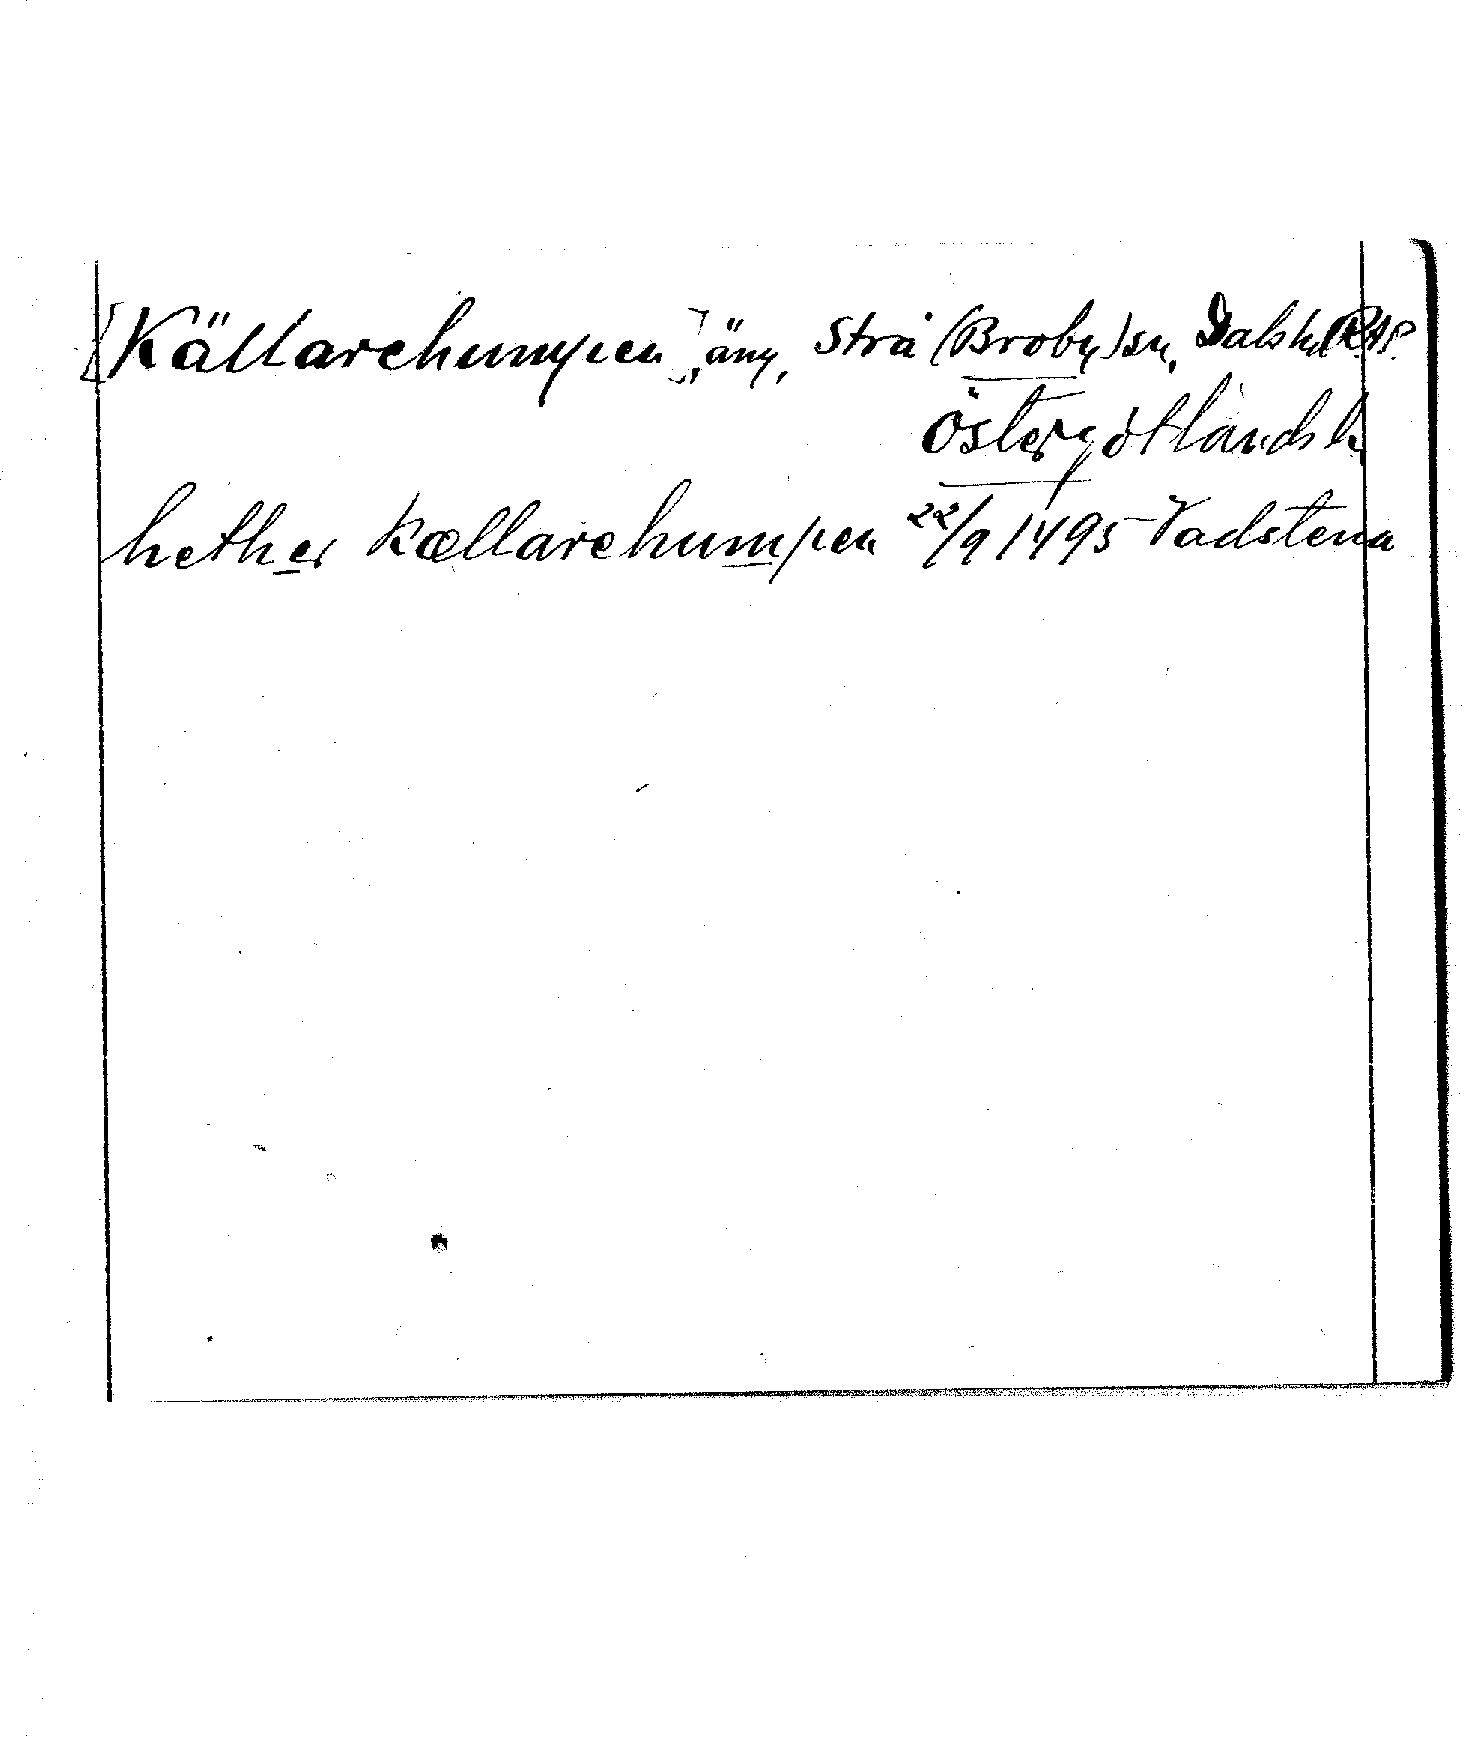 [Källarehumpen], äng, Strå (Broby) sn, Dals hd RAP.
Östergötlands l.
hether Kællarehumpen 22/9 1495 Vadstena